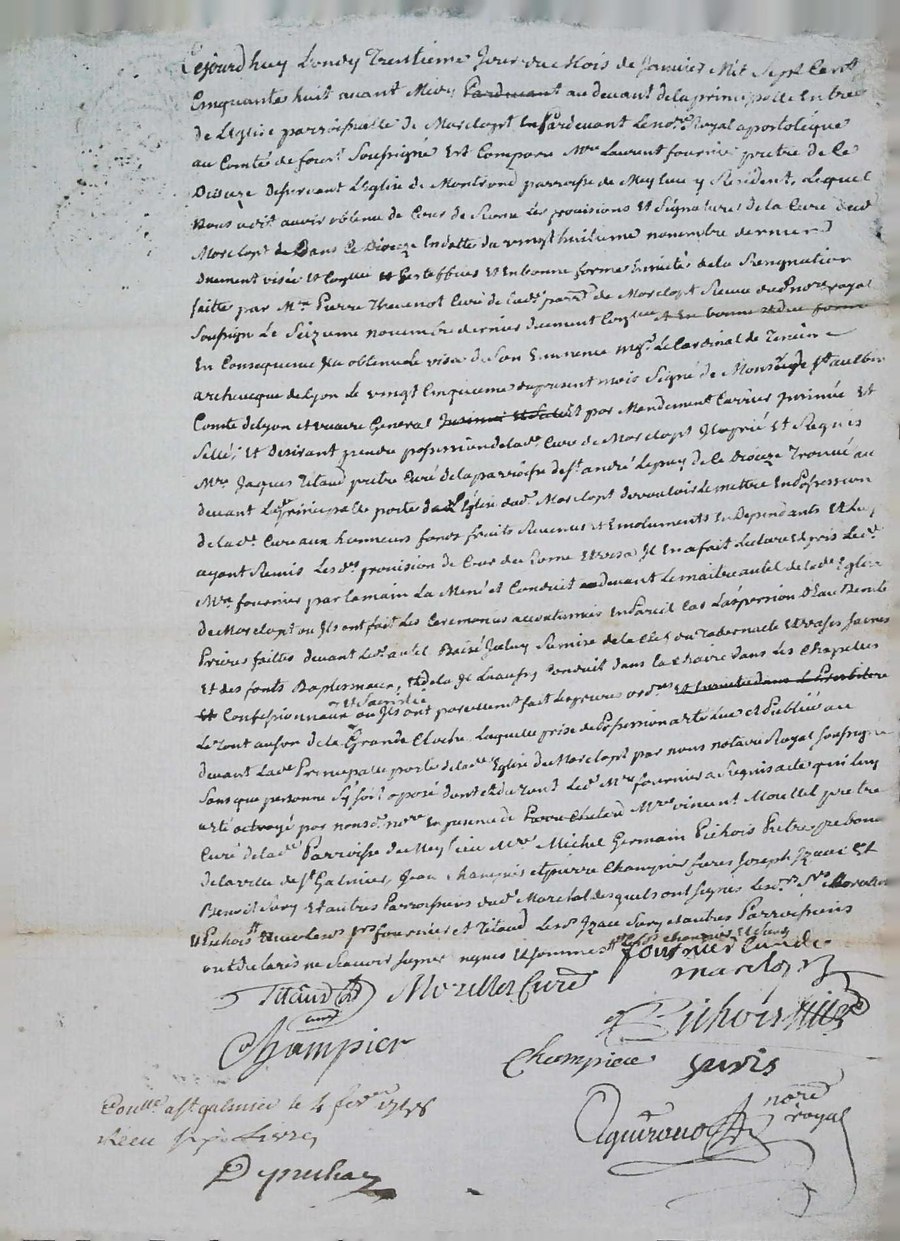 Cejourdhuy Londy Trentieme Jour du Mois de Janvier Mil Sept Cent
Cinquante huit avant Midy Pardevant au devant de la principalle Entrée
de L'Eglise parroissialle de Marclopt Et Pardevant Le nore Royal apostolique
au Comté de forest Soussigné Est Comparu Mre Laurent fournier pretre de Ce
Dioceze Desservant L'Eglise de Montrond parroisse de Meylieu y Résident, Lequel
Nous a dit avoir obtenu de Cour de Rome Les provisions Et Signatures de la Cure dud
Marclopt de Dans Ce Dioceze En datte du vingt huitieme novembre dernier
Duement visée Et Et Enbonne forme de la Resignation
faitte par Mre Pierre Thevenot Curé de lade parrse de Marclopt Receue dud Nore royal
Soussigné Le Seizieme novembre dernier duement Et En bonne Et due forme
En Consequence Il a obtenu le visa de Son Eminence Mgr Le Cardinal de Tencin
archeveque de Lyon le vingt Cinquieme du present mois Signé de Monsr de St aulbin
Comte de Lyon et vicaire General par Mandement Carrier Et
Sellé, Et Desirant prendre possession de lade Cure de Marclopt Il a prié Et Requis
Mre Jacques Titaud pretre Curé de la parroisse de St andré Le puy de Ce Dioceze Trouvé au
devant La principalle porte de L'Eglise dud Marclopt de vouloir Le mettre En Possession
de lade Cure aux honneurs fonds fruits Revenus et Emoluments En Dependants Et Luy
ayant Remis Lesdes provision de Cour de Rome Et visa Il En a fait Lecture Et pris Led
Mre fournier par la main L'a Mené et Conduit au devant Le maitre autel de lade Eglise
de Marclopt ou Ils ont fait Les Ceremonies accoutumées En Pareil Cas L'aspersion D'Eau Benite
Prieres faittes devant Led autel Baisé Iceluy Remise de la Clef du Tabernacle Et vases Sacrés
Et des fonts Baptismaux, Et de la Il L'a aussy Conduit dans la Chaire dans Les Chapelles
et Sacristie
Et Confessionnaux ou Ils ont pareillement fait Les prieres ordres Et Ensuite dans Le Presbitere
Le Tout au son de la Grande Cloche Laquelle prise de Possession a eté Lue et Publiée au
devant Lade Principalle porte de lade Eglise de Marclopt par nous notaire Royal Soussigné
Sans que personne S'y soit oposé dont Et du Tout Led Mre fournier a Requis acte qui Luy
a eté octroyé par nousd nore En presence de Mre vincent Moullet pretre
Curé de lade Parroisse de Meylieu Mre Michel Germain Pichois Pretre prebend
de la ville de St Galmier, Jean Champier et pierre Champier freres Joseph Izaac Et
Benoit Jury Et autres Parroissiens dud Marclopt desquels ont signés Lesd Srs
Et Pichois Et fournier et Titaud Izaac Jury et autres Parroissiens
ont declarés ne Scavoir Signer requis Et Sommés
fournier Curé de
Marclopt
Titaud Curé Moullet Curé
Pichois
Champier
Champier Juris
nore
royal
Conlle a St galmier le 4 fevr 1758
Recu Livres